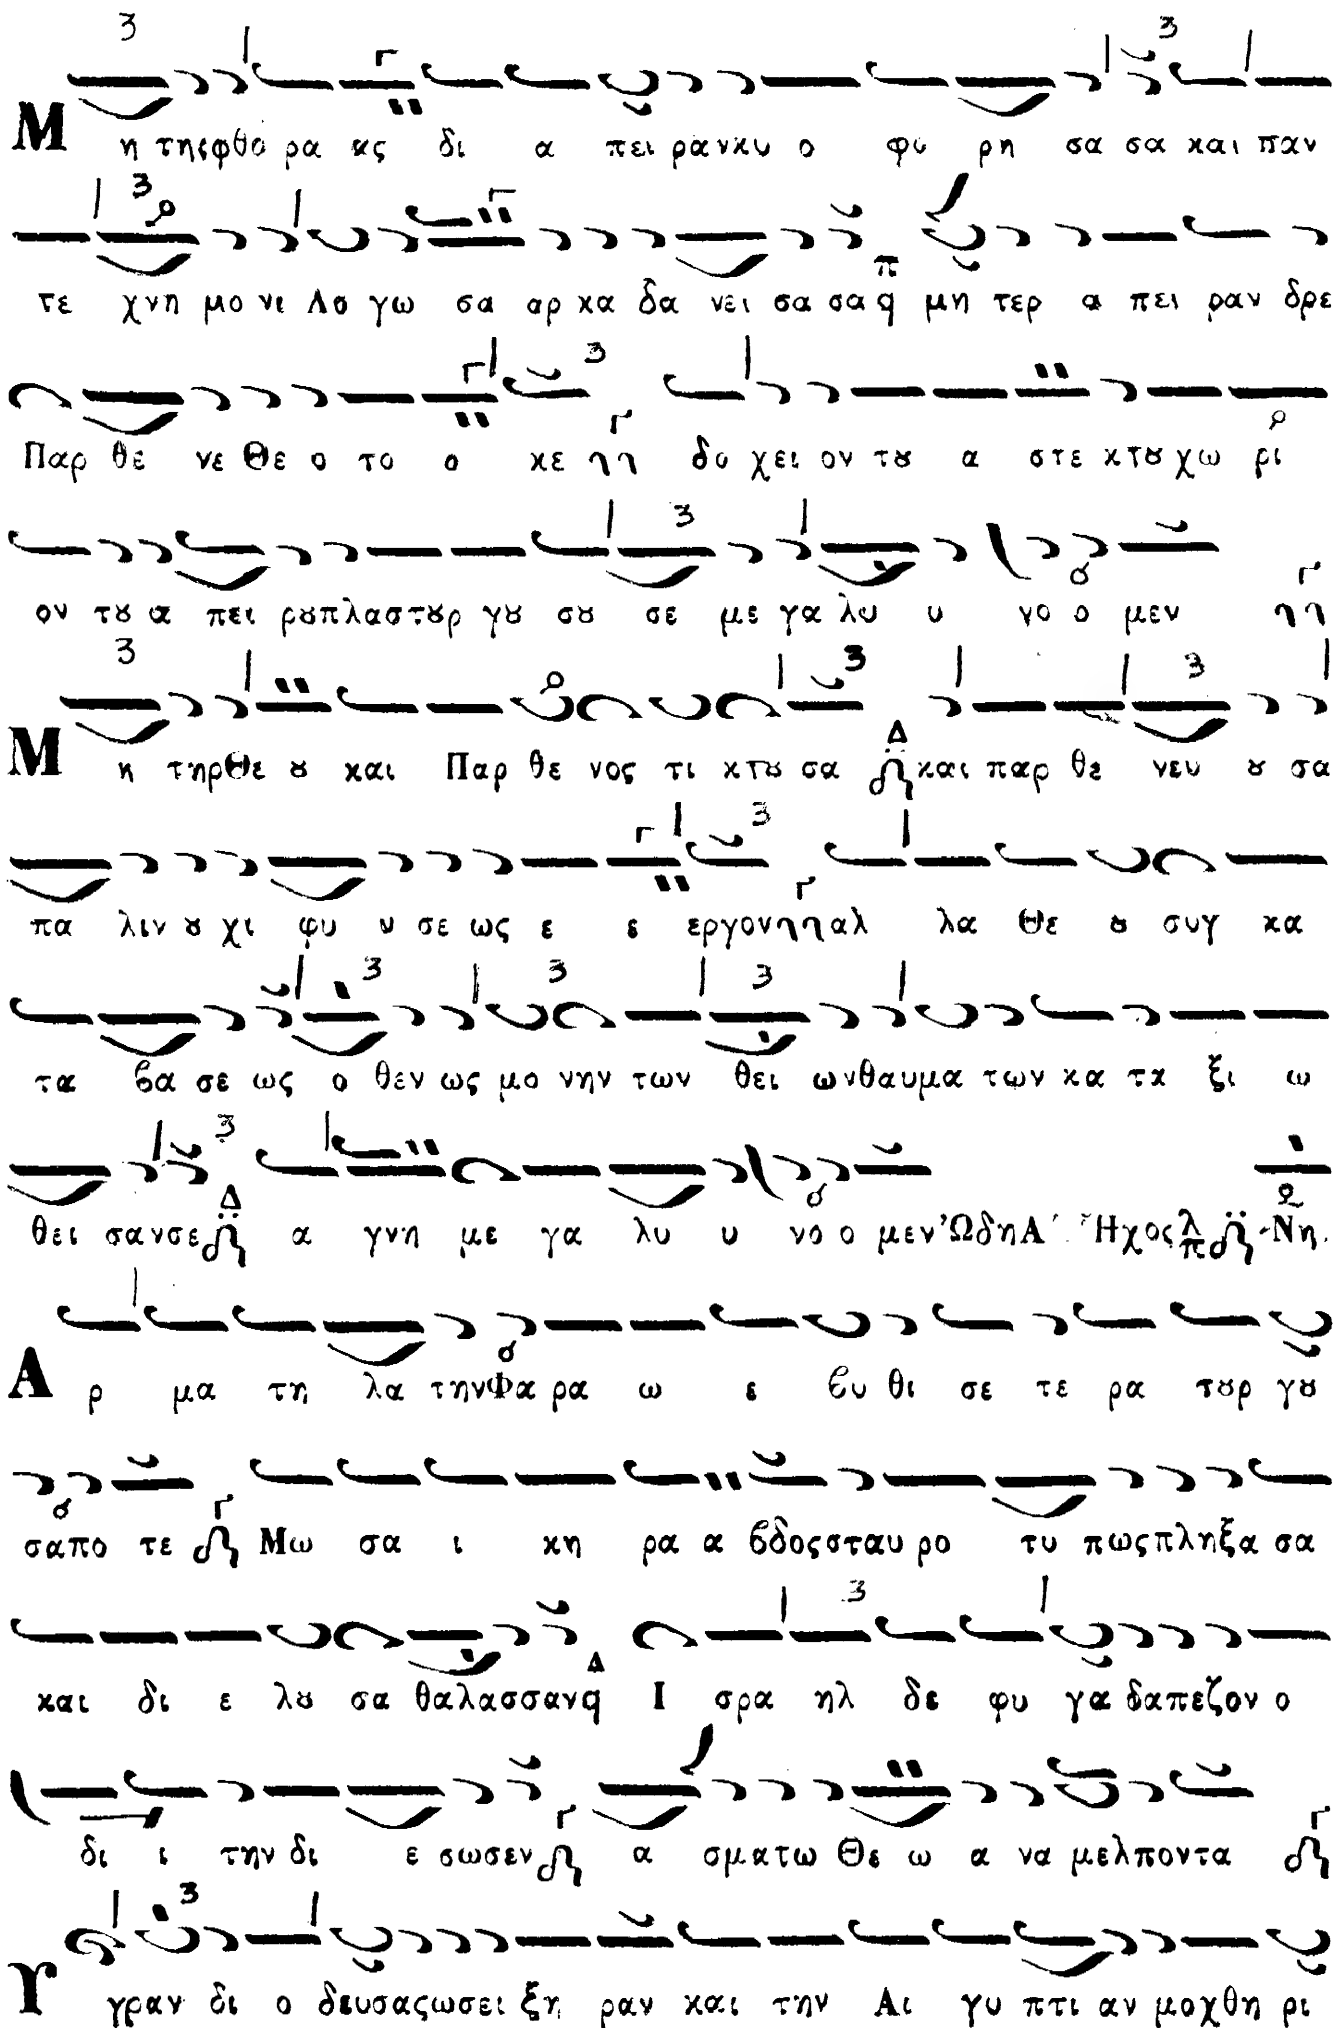 Μ η της φθο ρα ας δι α πει ραν κυ ο φο ρη σα σα και παν
τε χνη μο νι Λο γω σα αρ κα δα νει σα σα π̈ q μη τερ α πει ραν δρε
Παρ θε νε Θε ο το ο κε Γ δο χει ον τȣ α στε κτȣ χω ρι
ον τȣ α πει ρȣ πλαστȣρ γȣ σȣ σε με γα λυ υ νο ο μεν Γ
Μ η τηρ Θε ȣ και Παρ θε νος τι κτȣ σα Δ και παρ θε νευ ȣ σα
πα λιν ȣ χι φυ υ σε ως ε ε εργον Γ αλ λα Θε ȣ συγ κα
τα βα σε ως ο θεν ως μο νην των θει ων θαυμα των κα τα ξι ω
θει σαν σε Δ α γνη με γα λυ υ νο ο μεν Ὠδη Α΄ Ἦχος λ π Νη.
Α ρ μα τη λα την Φα ρα ω ε βυ θι σε τε ρα τȣρ γȣ
σα πο τε Γ Μω σα ι κη ρα α βδος σταυ ρο τυ πως πληξα σα
και δι ε λȣ σα θαλασσαν Δ q Ι σρα ηλ δε φυ γα δα πεζον ο
δι ι την δι ε σωσεν Γ α σματω Θε ω α να μελποντα Γ
Υ γραν δι ο δευσας ωσει ξη ραν και την Αι γυ πτι αν μοχθη ρι